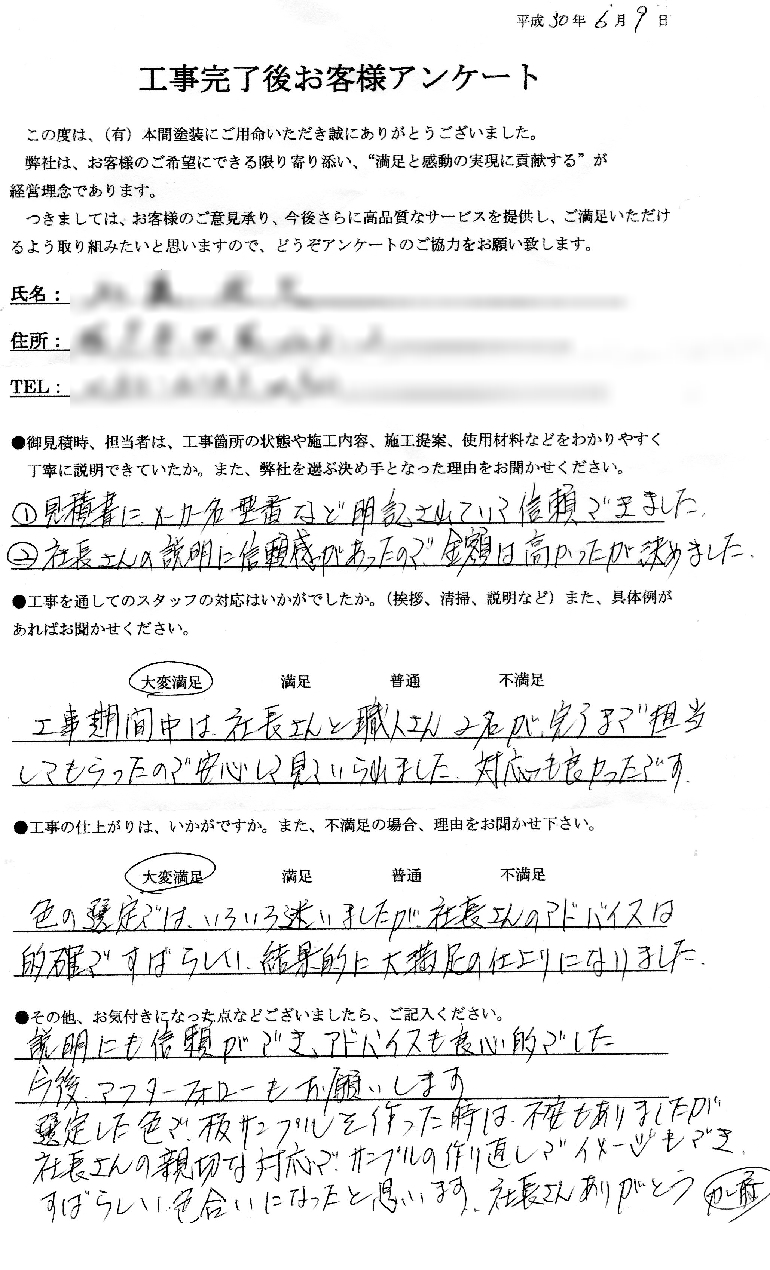 平成30年6月9日
工事完了後お客様アンケート
この度は、（有）本間塗装にご用命いただき誠にありがとうございました。
弊社は、お客様のご希望にできる限り寄り添い、“満足と感動の実現に貢献する”が
経営理念であります。
つきましては、お客様のご意見承り、今後さらに高品質なサービスを提供し、ご満足いただけ
るよう取り組みたいと思いますので、どうぞアンケートのご協力をお願い致します。
氏名：
住所：
TEL：
●御見積時、担当者は、工事箇所の状態や施工内容、施工提案、使用材料などをわかりやすく
丁寧に説明できていたか。また、弊社を選ぶ決め手となった理由をお聞かせください。
①見積書に、メーカー名型番など明記されていて信頼できました。
②社長さんの説明に信頼感があったので金額は高かったが決めました。
●工事を通してのスタッフの対応はいかがでしたか。（挨拶、清掃、説明など）また、具体例が
あればお聞かせください。
大変満足 満足 普通 不満足
工事期間中は、社長さんと職人さん2名が、完了まで担当
してもらったので安心して見ていられました。対応も良かったです。
●工事の仕上がりは、いかがですか。また、不満足の場合、理由をお聞かせ下さい。
大変満足 満足 普通 不満足
色の選定では、いろいろ迷いましたが、社長さんのアドバイスは
的確ですばらしい、結果的に大満足の仕上りになりました。
●その他、お気付きになった点などございましたら、ご記入ください。
説明にも信頼ができ、アドバイスも良心的でした
今後、アフターフォローもお願いします
選定した色で、板サンプルを作った時は、不安もありましたが
社長さんの親切な対応で、サンプルの作り直しでイメージもでき、
すばらしい色合いになったと思います、社長さんありがとう